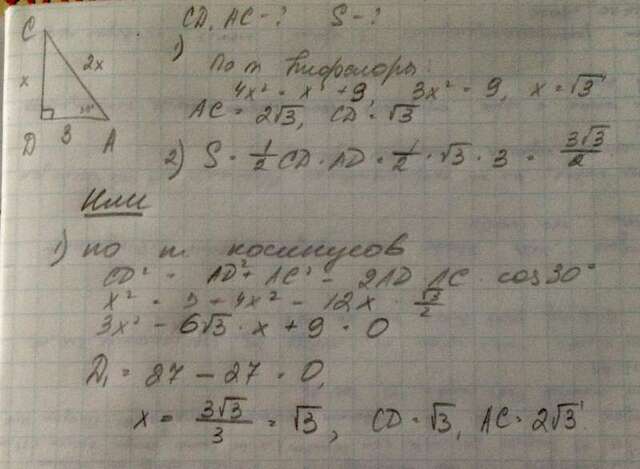 CD, AC - ? S - ?
C
x 2x
30°
D 3 A
1) По т. Пифагора
4x² = x² + 9, 3x² = 9, x = √3
AC = 2√3, CD = √3
2) S = 1/2 CD · AD = 1/2 · √3 · 3 = 3√3/2
Или
1) по т. косинусов
CD² = AD² + AC² - 2AD AC · cos 30°
x² = 9 + 4x² - 12x · √3/2
3x² - 6√3 · x + 9 = 0
D₁ = 27 - 27 = 0,
x = 3√3/3 = √3, CD = √3, AC = 2√3